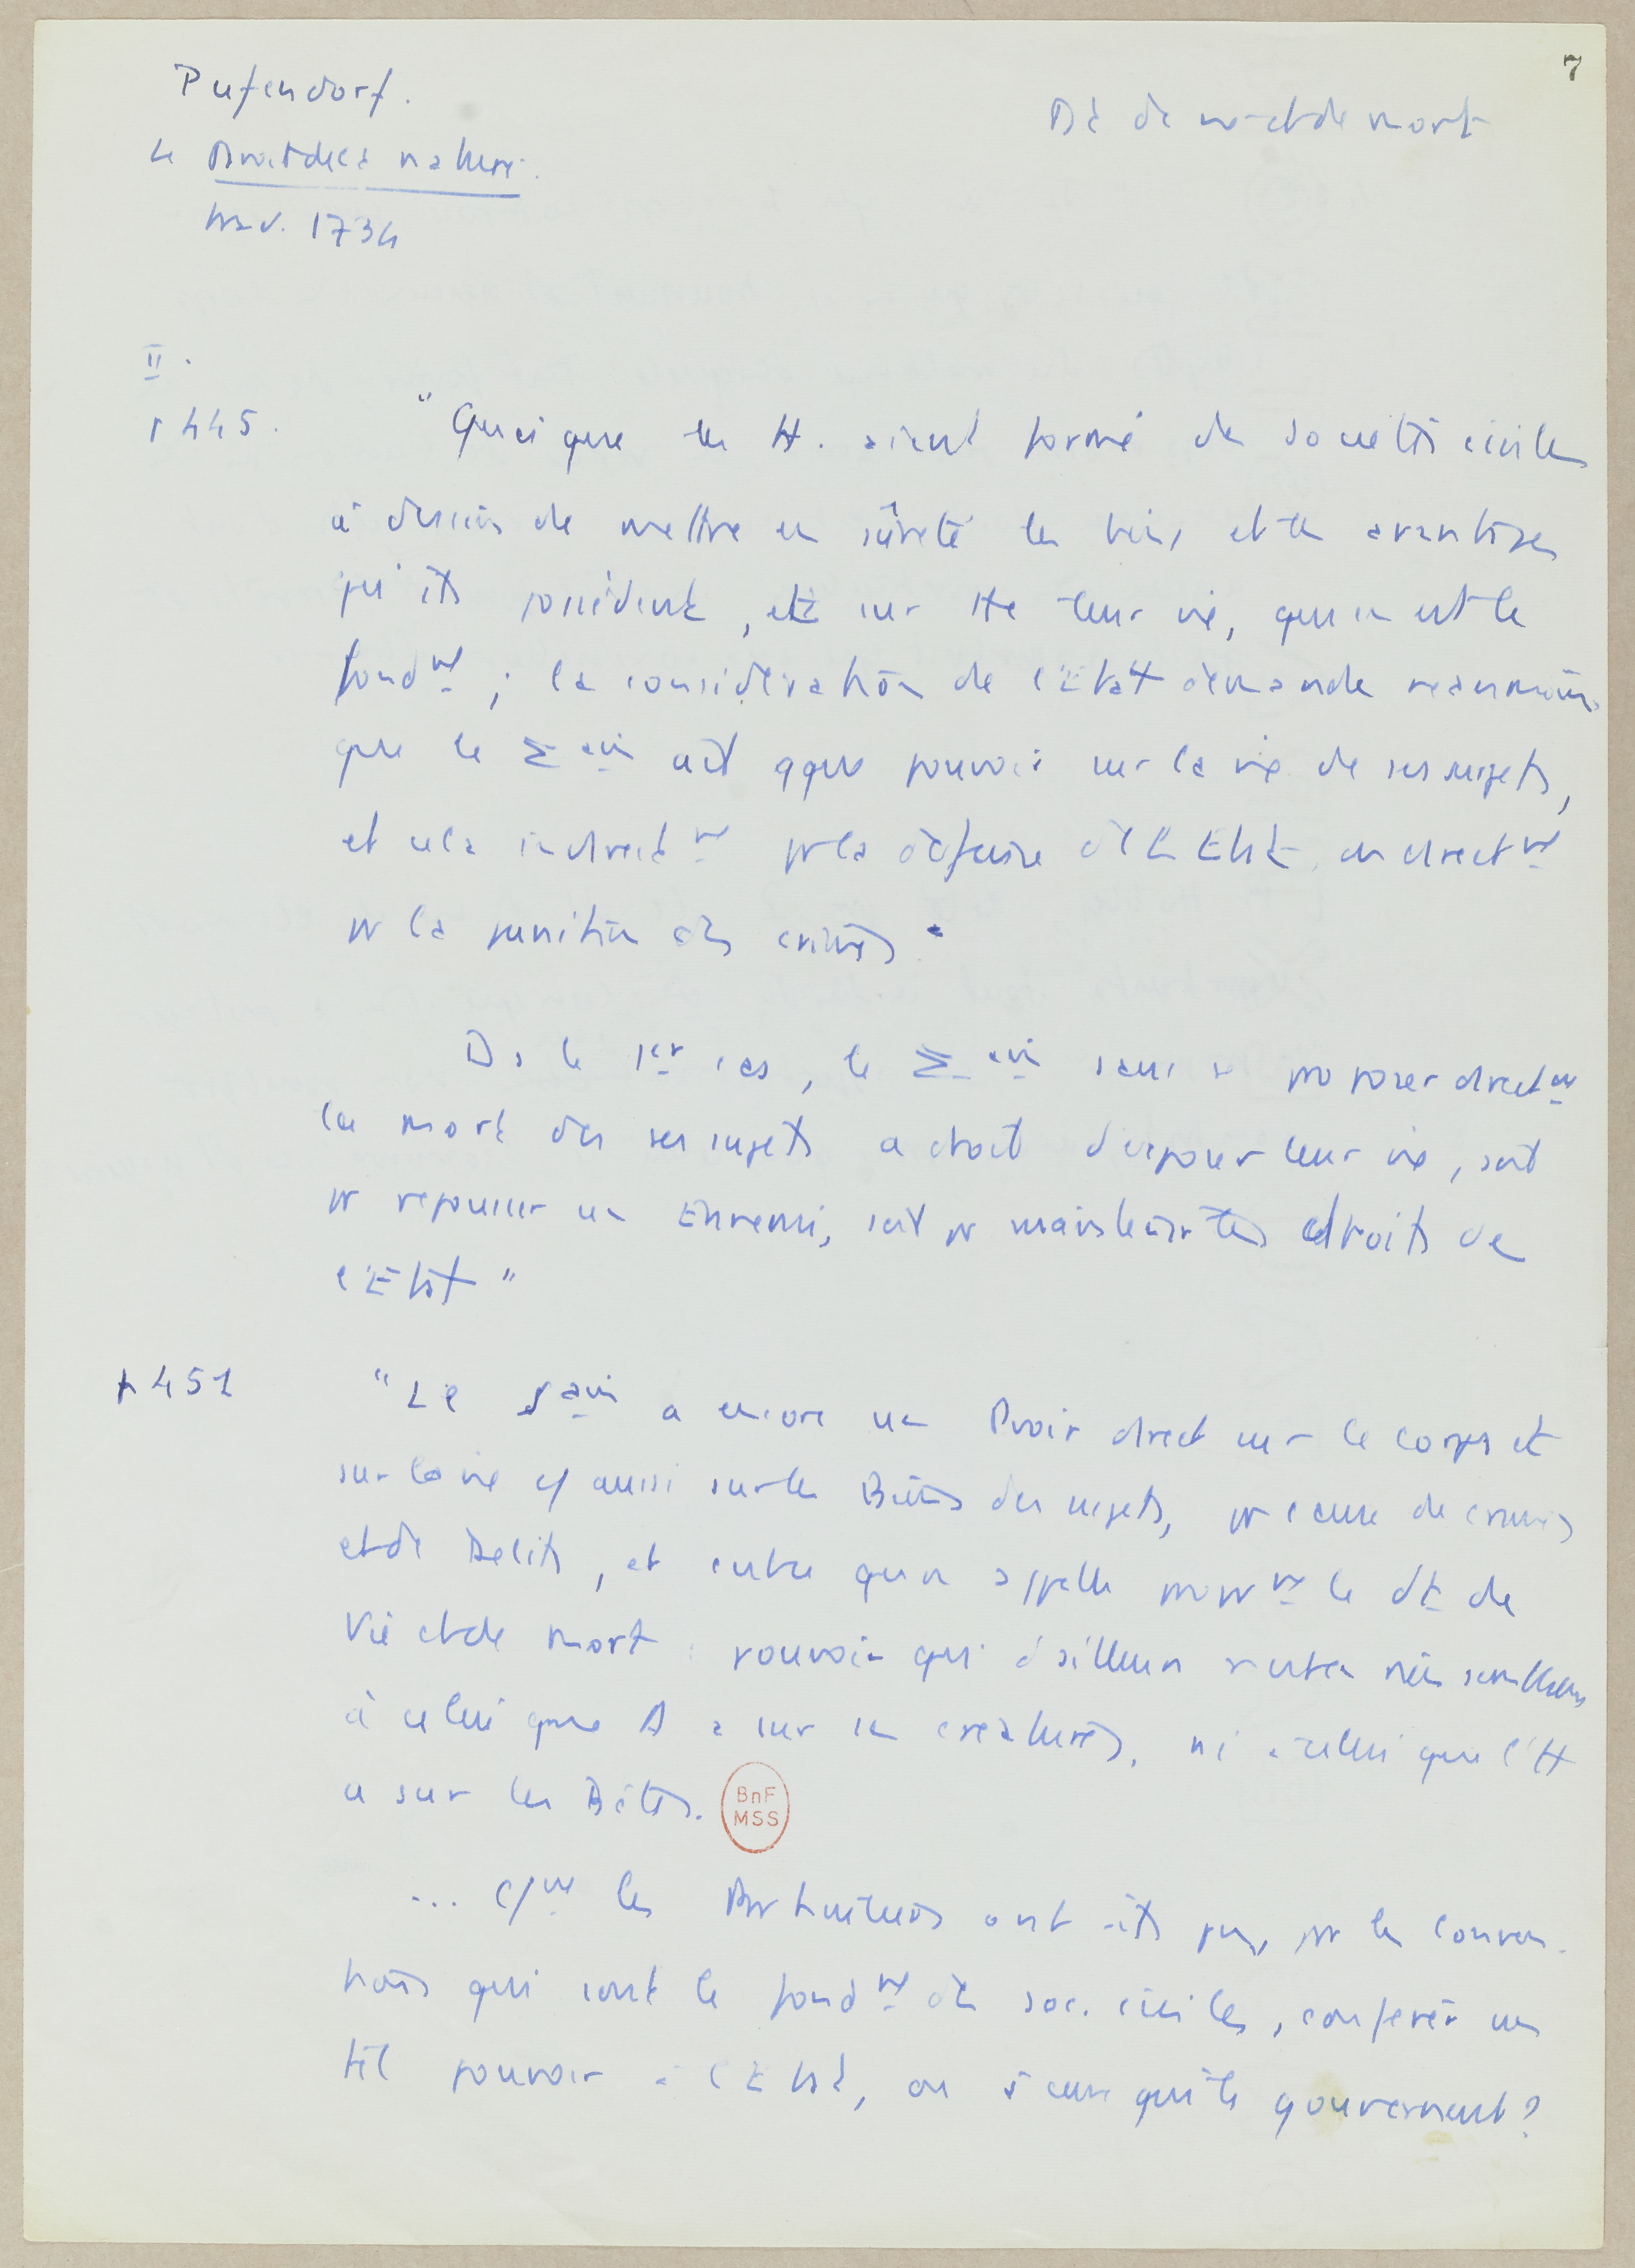 7
Pufendorf.
Dt de vie et de mort
Le Droit de la nature.
trad. 1734
II.
p 445.
"Quoique les H. aient formé des sociétés civiles
à dessein de mettre en sûreté les biens et les avantages
qu'ils possèdent, et sur tt leur vie, qui en est le
fondmt ; la considération de l'Etat demande néanmoins
que le Σain ait qque pouvoir sur la vie de ses sujets,
et cela indirectmt pr la défense de l'Etat ou directmt
pr la punition des crimes"
Ds le 1er cas, le Σain sans se proposer directmt
la mort des ses sujets a droit d'exposer leur vie, soit
pr repousser un Ennemi, soit pr maintenir les droits de
l'Etat"
p 451
"Le Sain a encore un Pvoir direct sur le corps et
sur la vie c/ aussi sur les Biens des sujets, pr cause de crimes
et de Délits, et c'est ce qu'on appelle proprmt le dt de
Vie et de mort : pouvoir qui d'ailleurs n'est ni semblable
à celui que D a sur ses créatures, ni à celui que l'H
a sur les Bêtes.
BnF
MSS
... c/mt les Particuliers ont-ils pu, pr les conven-
tions qui sont le fondmt des soc. civiles, conférer un
tel pouvoir à l'Etat, ou à ceux qui le gouvernent?